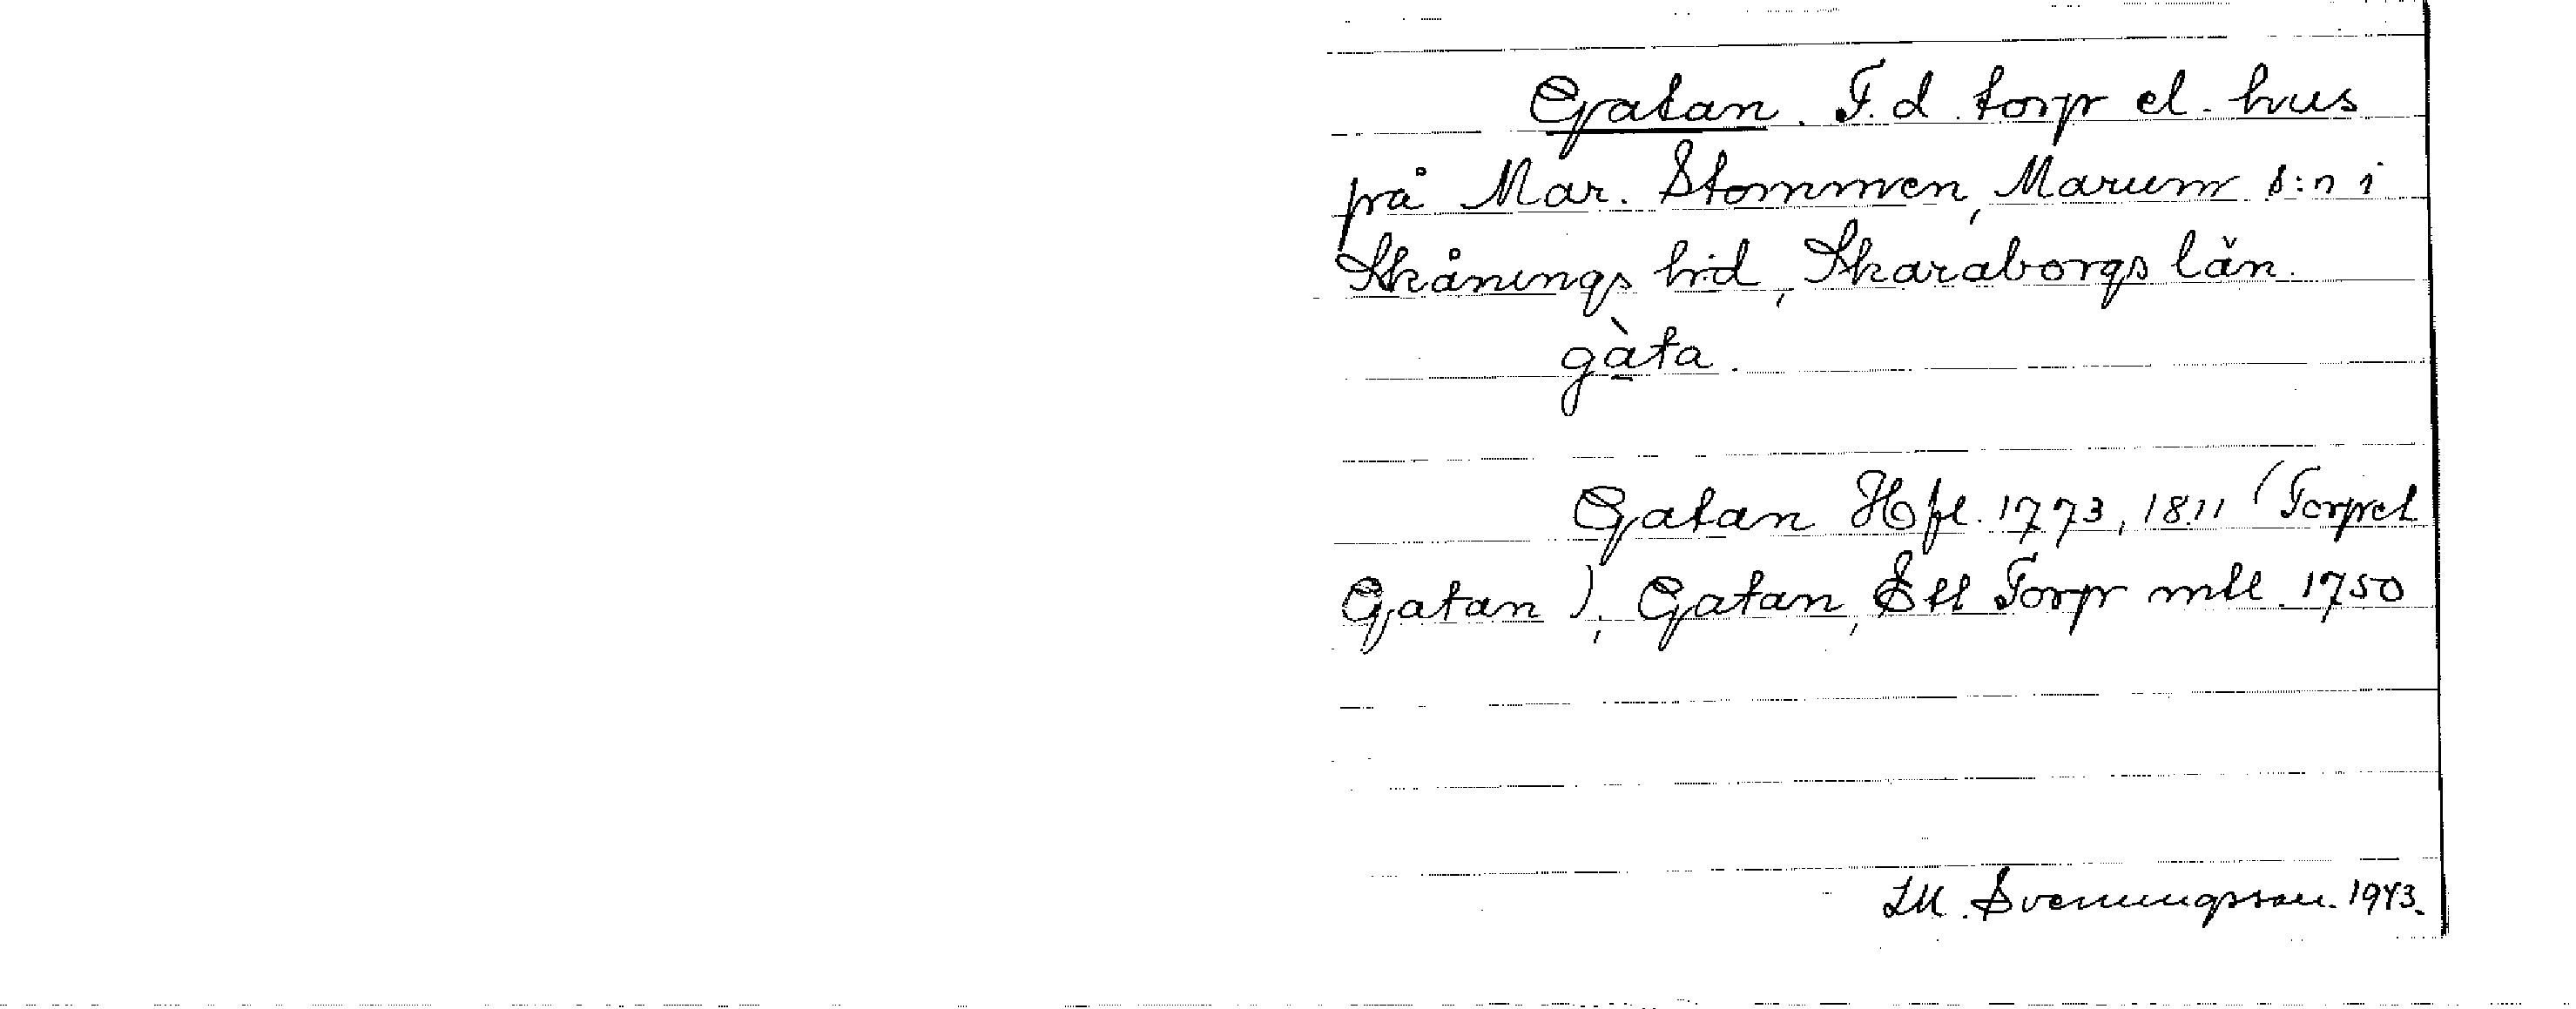 Gatan. F.d. torp el. hus
på Mar. Stommen, Marum s:n i
Skånings h:d, Skaraborgs län.
gàta.
Gatan Hfl. 1773, 1811 (Torpet
Gatan), Gatan, Ett Torp mtl. 1750
Svenungsson. 1943.